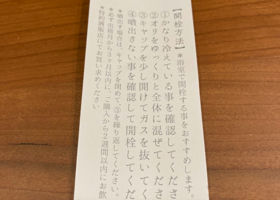 【開栓方法】＊浴室で開栓する事をおすすめします。
①かなり冷えている事を確認してくださ
②オリをゆっくりと全体に混ぜてくださ
③キャップを少し開けてガスを抜いてく
④噴出さない事を確認して開栓してくだ
＊噴出す場合は、キャップを閉めて、③を繰り返してください。
＊必ず出荷月から3ヶ月以内に、ご購入から2週間以内にお飲
＊特約酒販店にてお買い求めください。